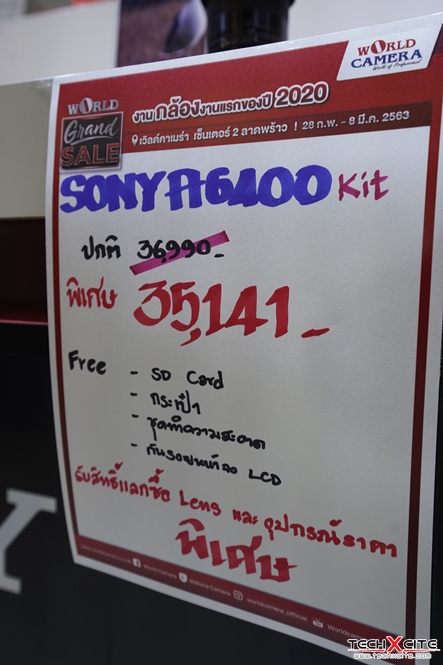 WORLD
CAMERA
World of Professional
WORLD
Grand
SALE
งานกล้องงานแรกของปี 2020
เวิลด์คาเมร่า เซ็นเตอร์ 2 ลาดพร้าว | 28 ก.พ. - 8 มี.ค. 2563
SONY A6400 Kit
ปกติ 36,990.-
พิเศษ 35,141.-
Free - SD Card
- กระเป๋า
- ชุดทำความสะอาด
- กันรอยหน้าจอ LCD
รับสิทธิ์แลกซื้อ Lens และ อุปกรณ์ราคา
พิเศษ
www.worldcamera.co.th World Camera @World Camera worldcamera_official
TECHXCITE
www.techxcite.com